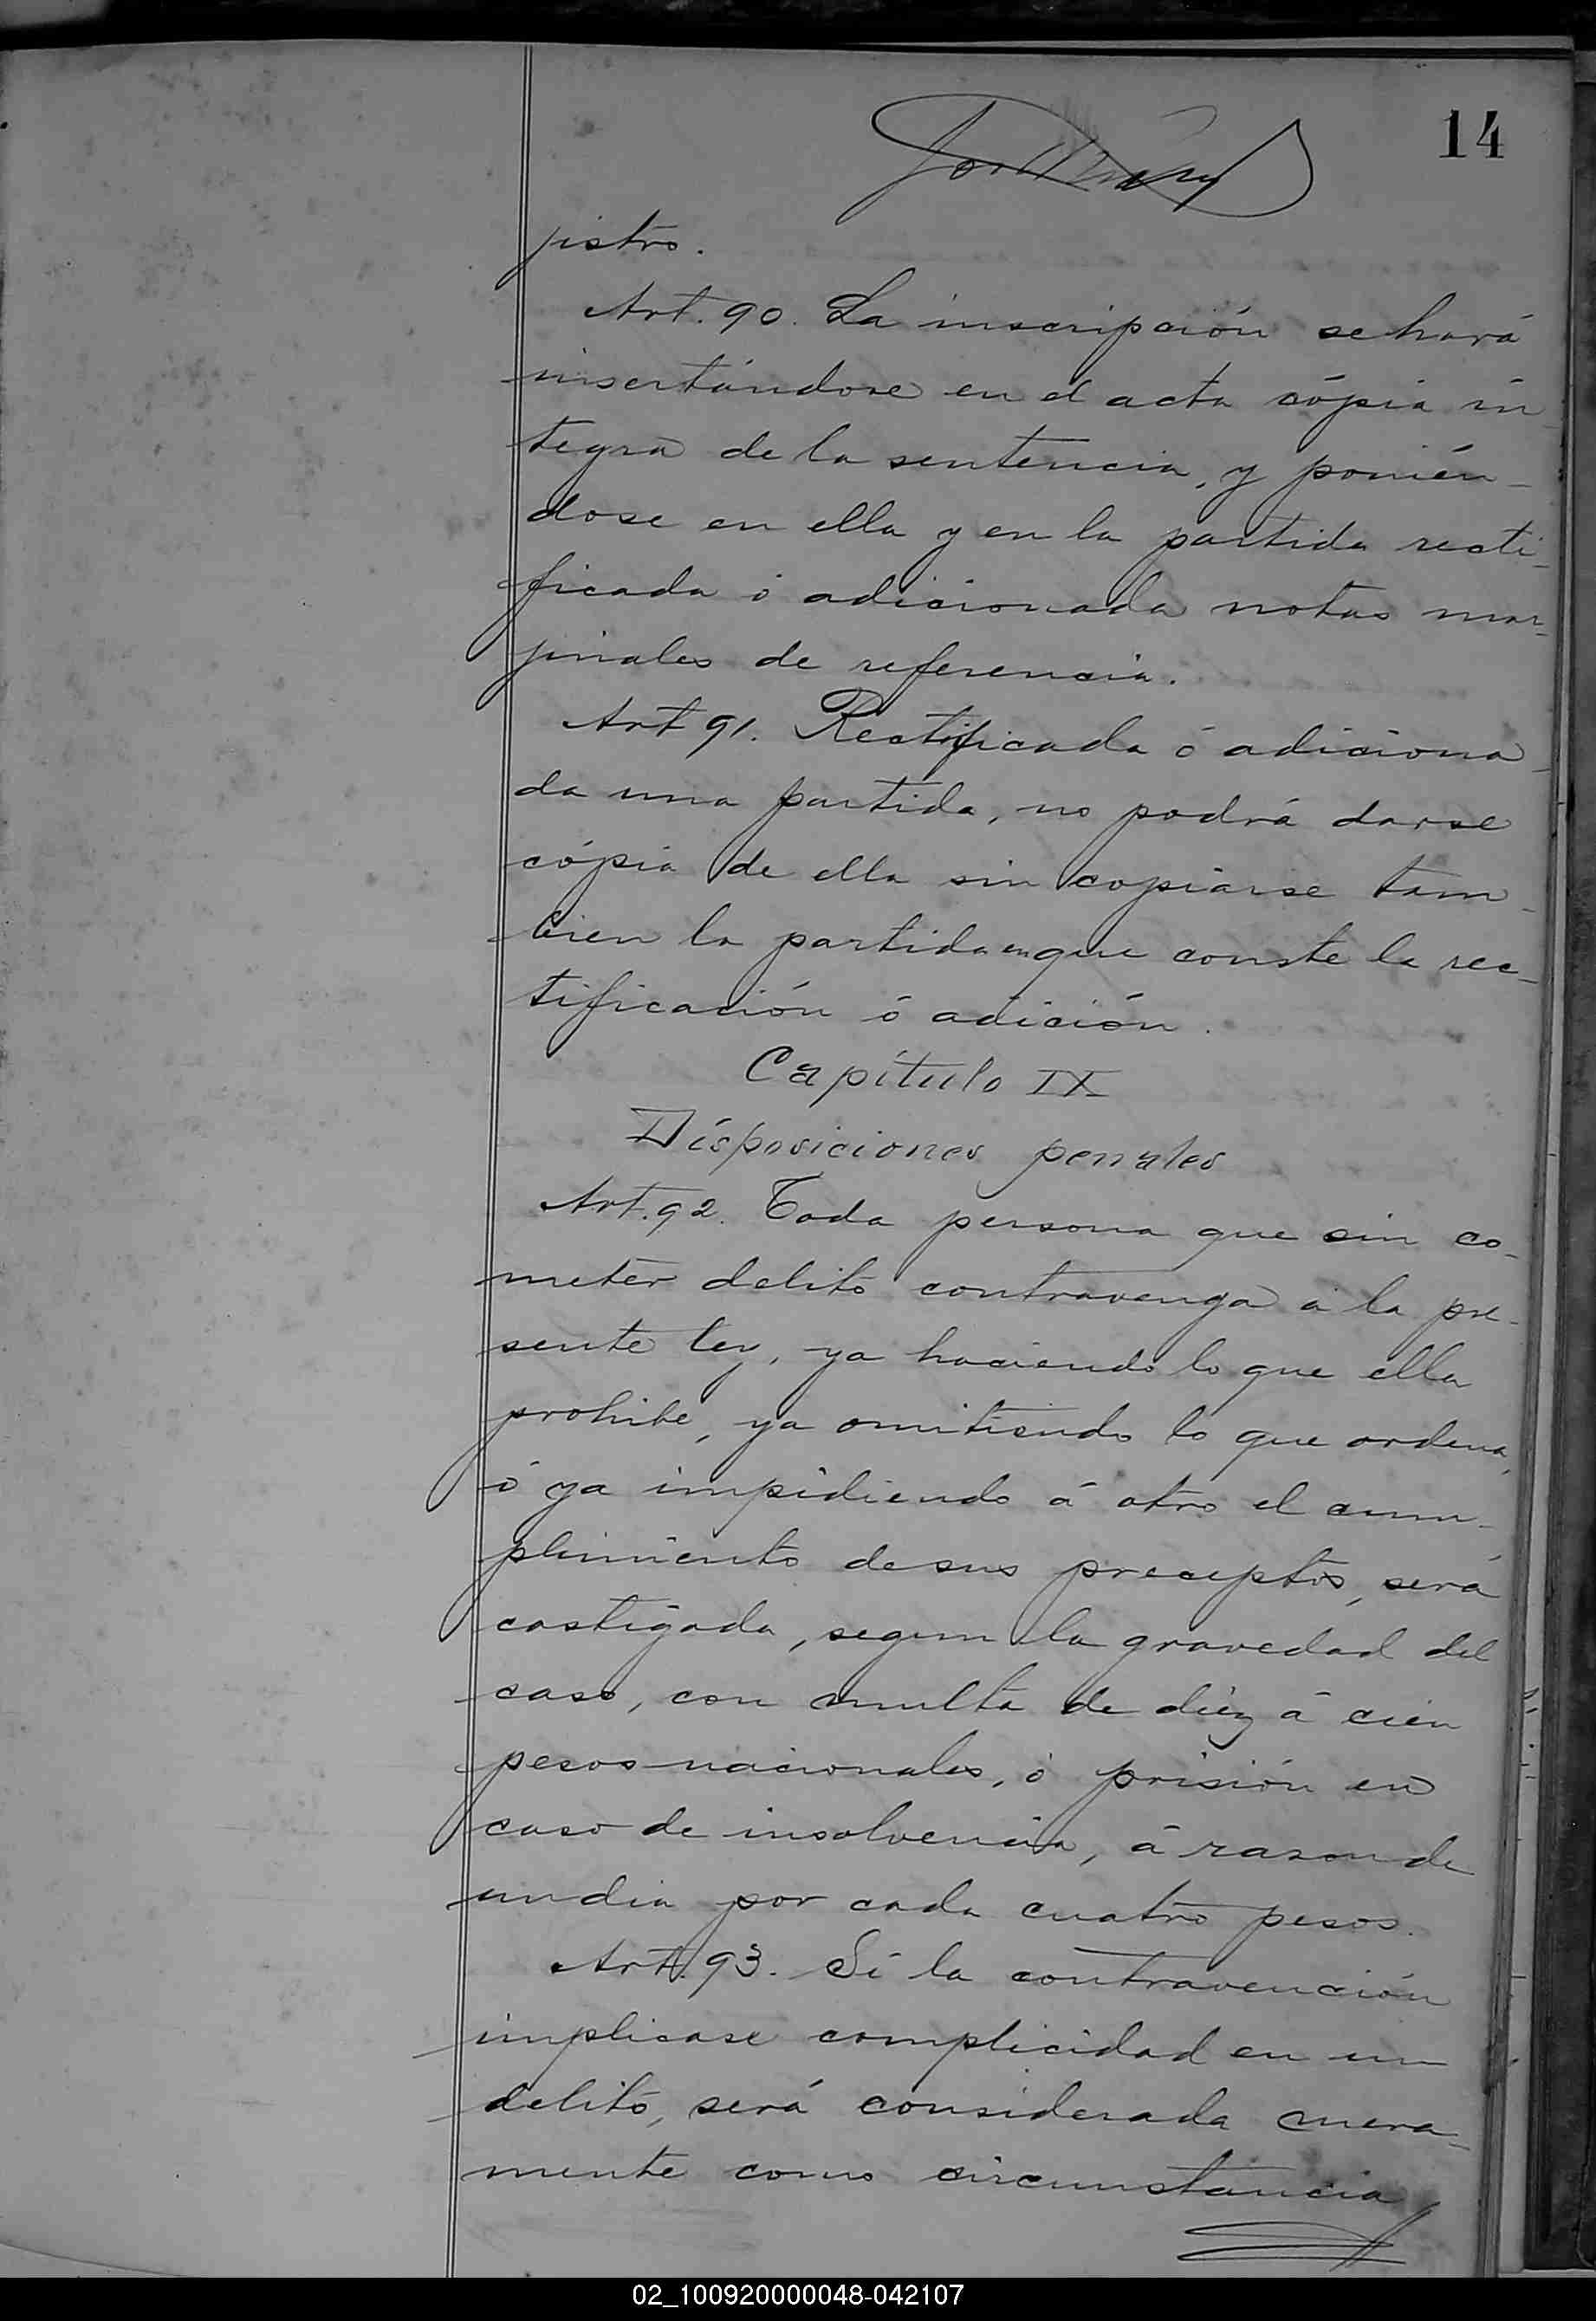 14
jistro.
Art. 90. La inscripción se hará
insertándose en el acta cópia ín
tegra de la sentencia, y ponién-
dose en ella y en la partida recti-
ficada ó adicionada notas mar-
jinales de referencia.
Art 91. Rectificada ó adiciona-
da una partida, no podrá darse
cópia de ella sin copiarse tam-
bien la partida en que conste la rec-
tificación ó adición.
Capítulo IX
Disposiciones penales
Art. 92. Toda persona que sin co-
meter delito contravenga á la pre-
sente ley, ya haciendo lo que ella
prohibe, ya omitiendo lo que ordena,
ó ya impidiendo á otro el cum-
plimiento de sus preceptos, será
castigada, segun la gravedad del
caso, con multa de diez á cien
pesos nacionales, ó prisión en
caso de insolvencia, á razon de
un dia por cada cuatro pesos.
Art. 93. Si la contravención
implicase complicidad en un
delito, será considerada mera-
mente como circunstancia
02_100920000048-042107